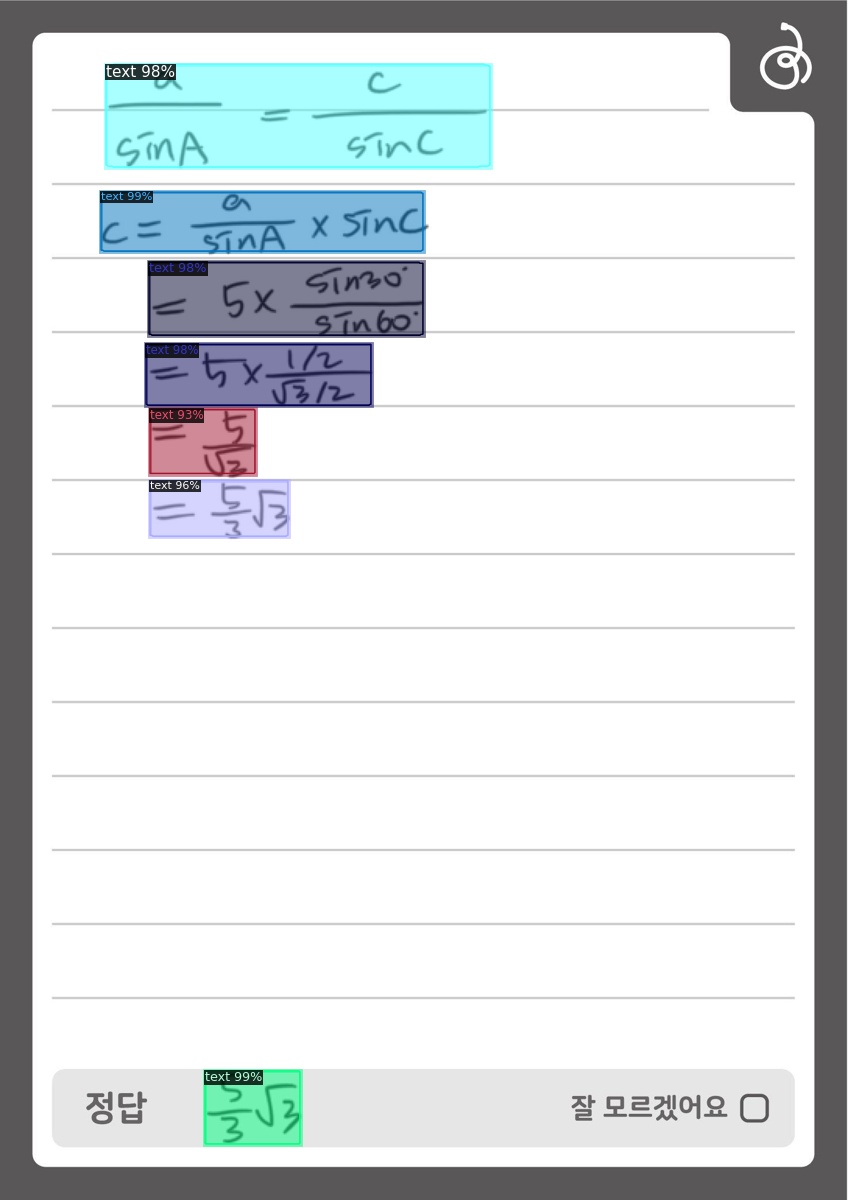 text 98%
a/sinA = c/sinC
text 99%
c = a/sinA × sinC
text 98%
= 5 × sin30°/sin60°
text 98%
= 5 × (1/2)/(√3/2)
text 93%
= 5/√3
text 96%
= 5/3 √3
text 99%
정답 5/3 √3 잘 모르겠어요